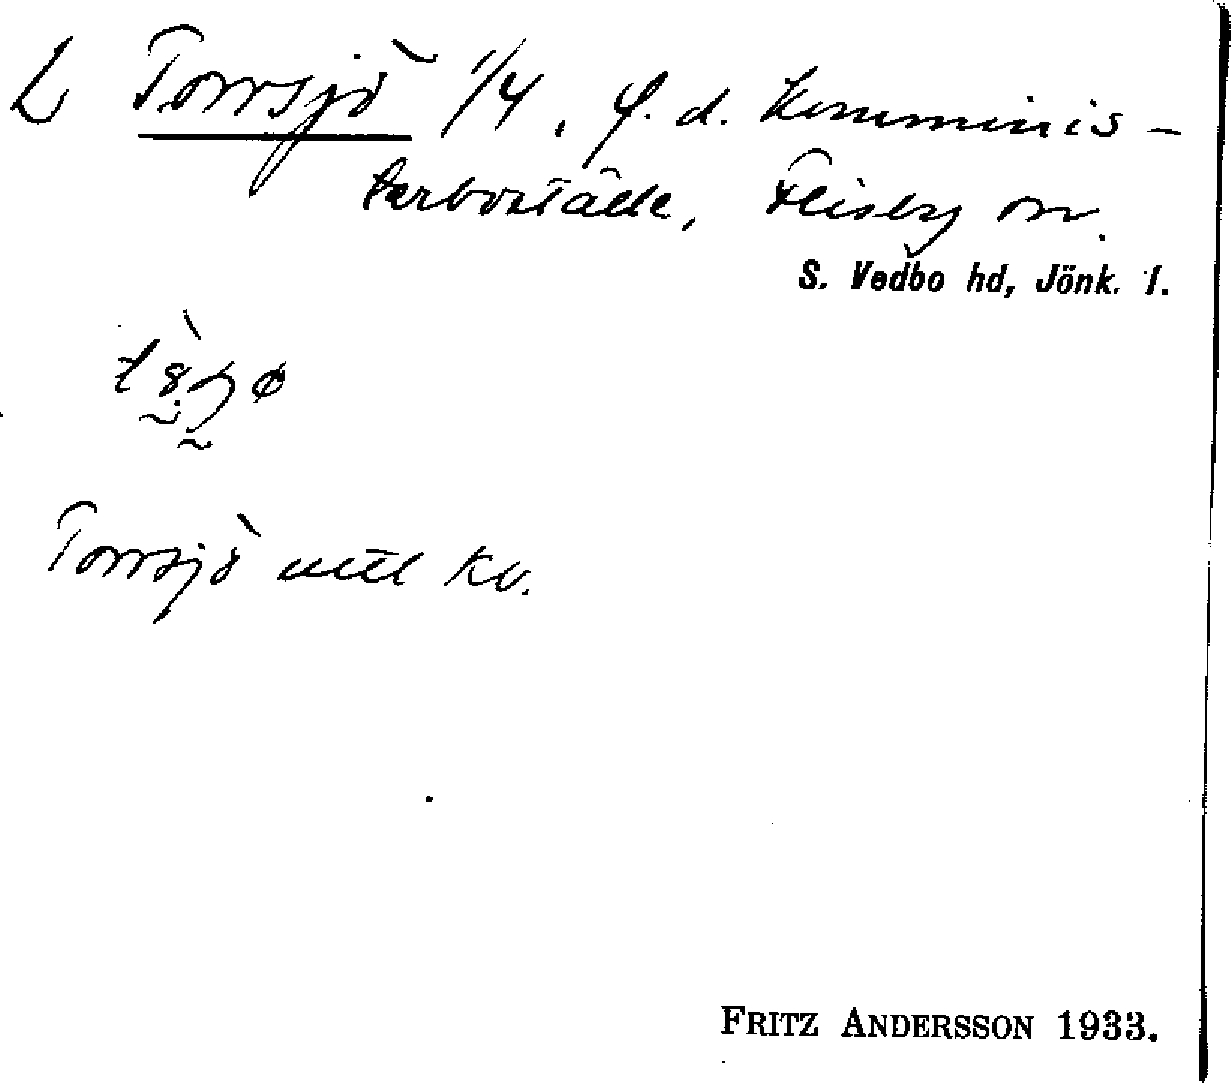 L Torrsjö 1/4, f. d. Komminis-
terboställe, Flisby sn.
S. Vedbo hd, Jönk. l.
Torrsjö mtl Kv.
FRITZ ANDERSSON 1933.